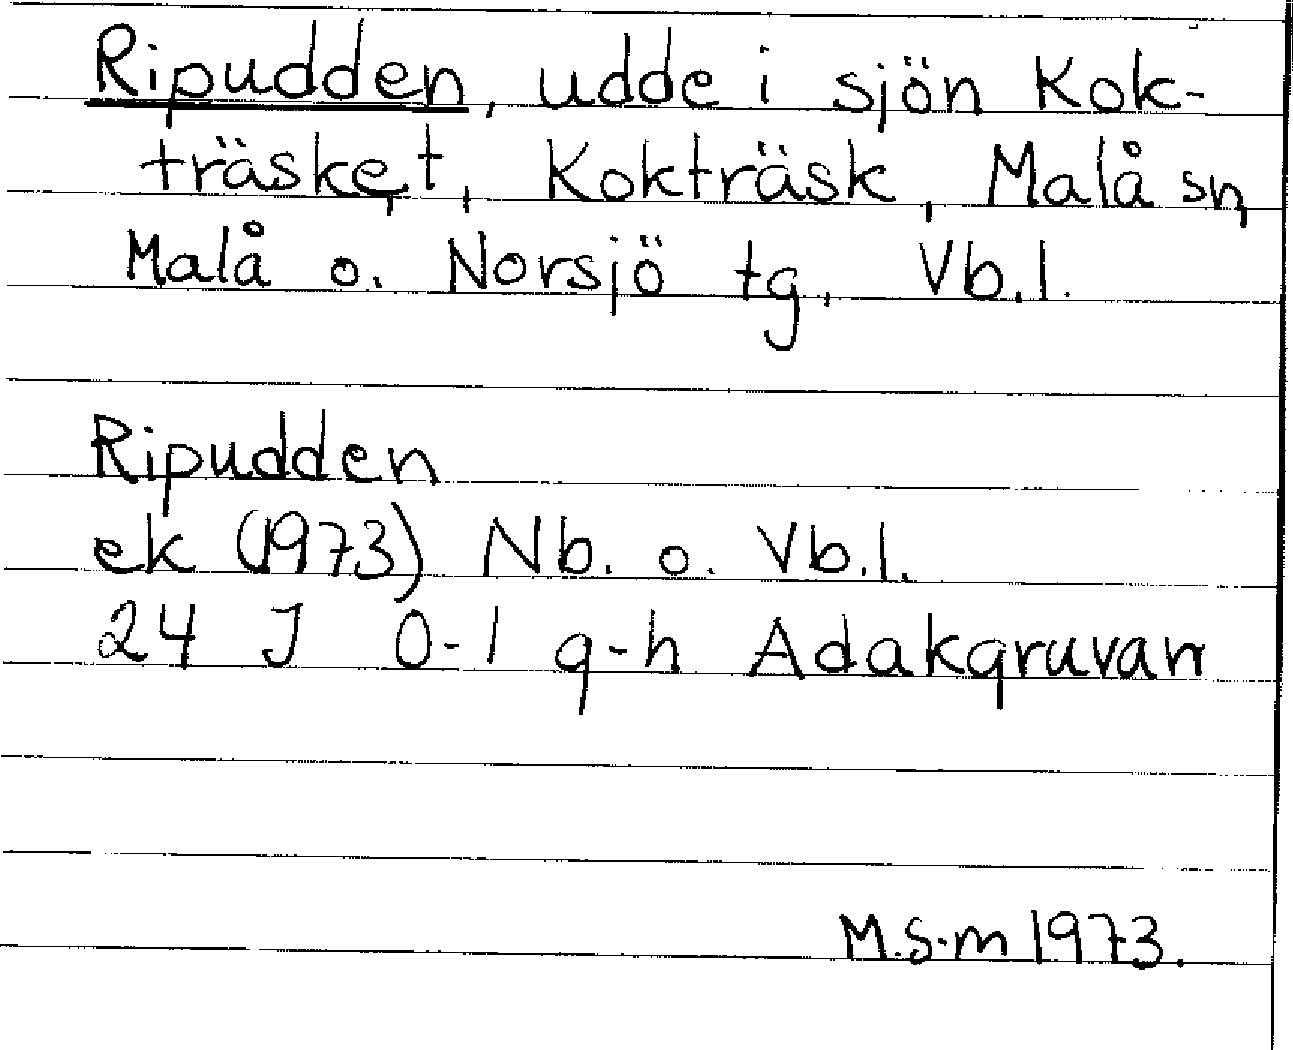 Ripudden, udde i sjön Kok-
träsket, Kokträsk, Malå sn,
Malå o. Norsjö tg, Vb.l.
Ripudden
ek (1973) Nb. o. Vb.l.
24 J 0-1 g-h Adakgruvan
M.S-m 1973.